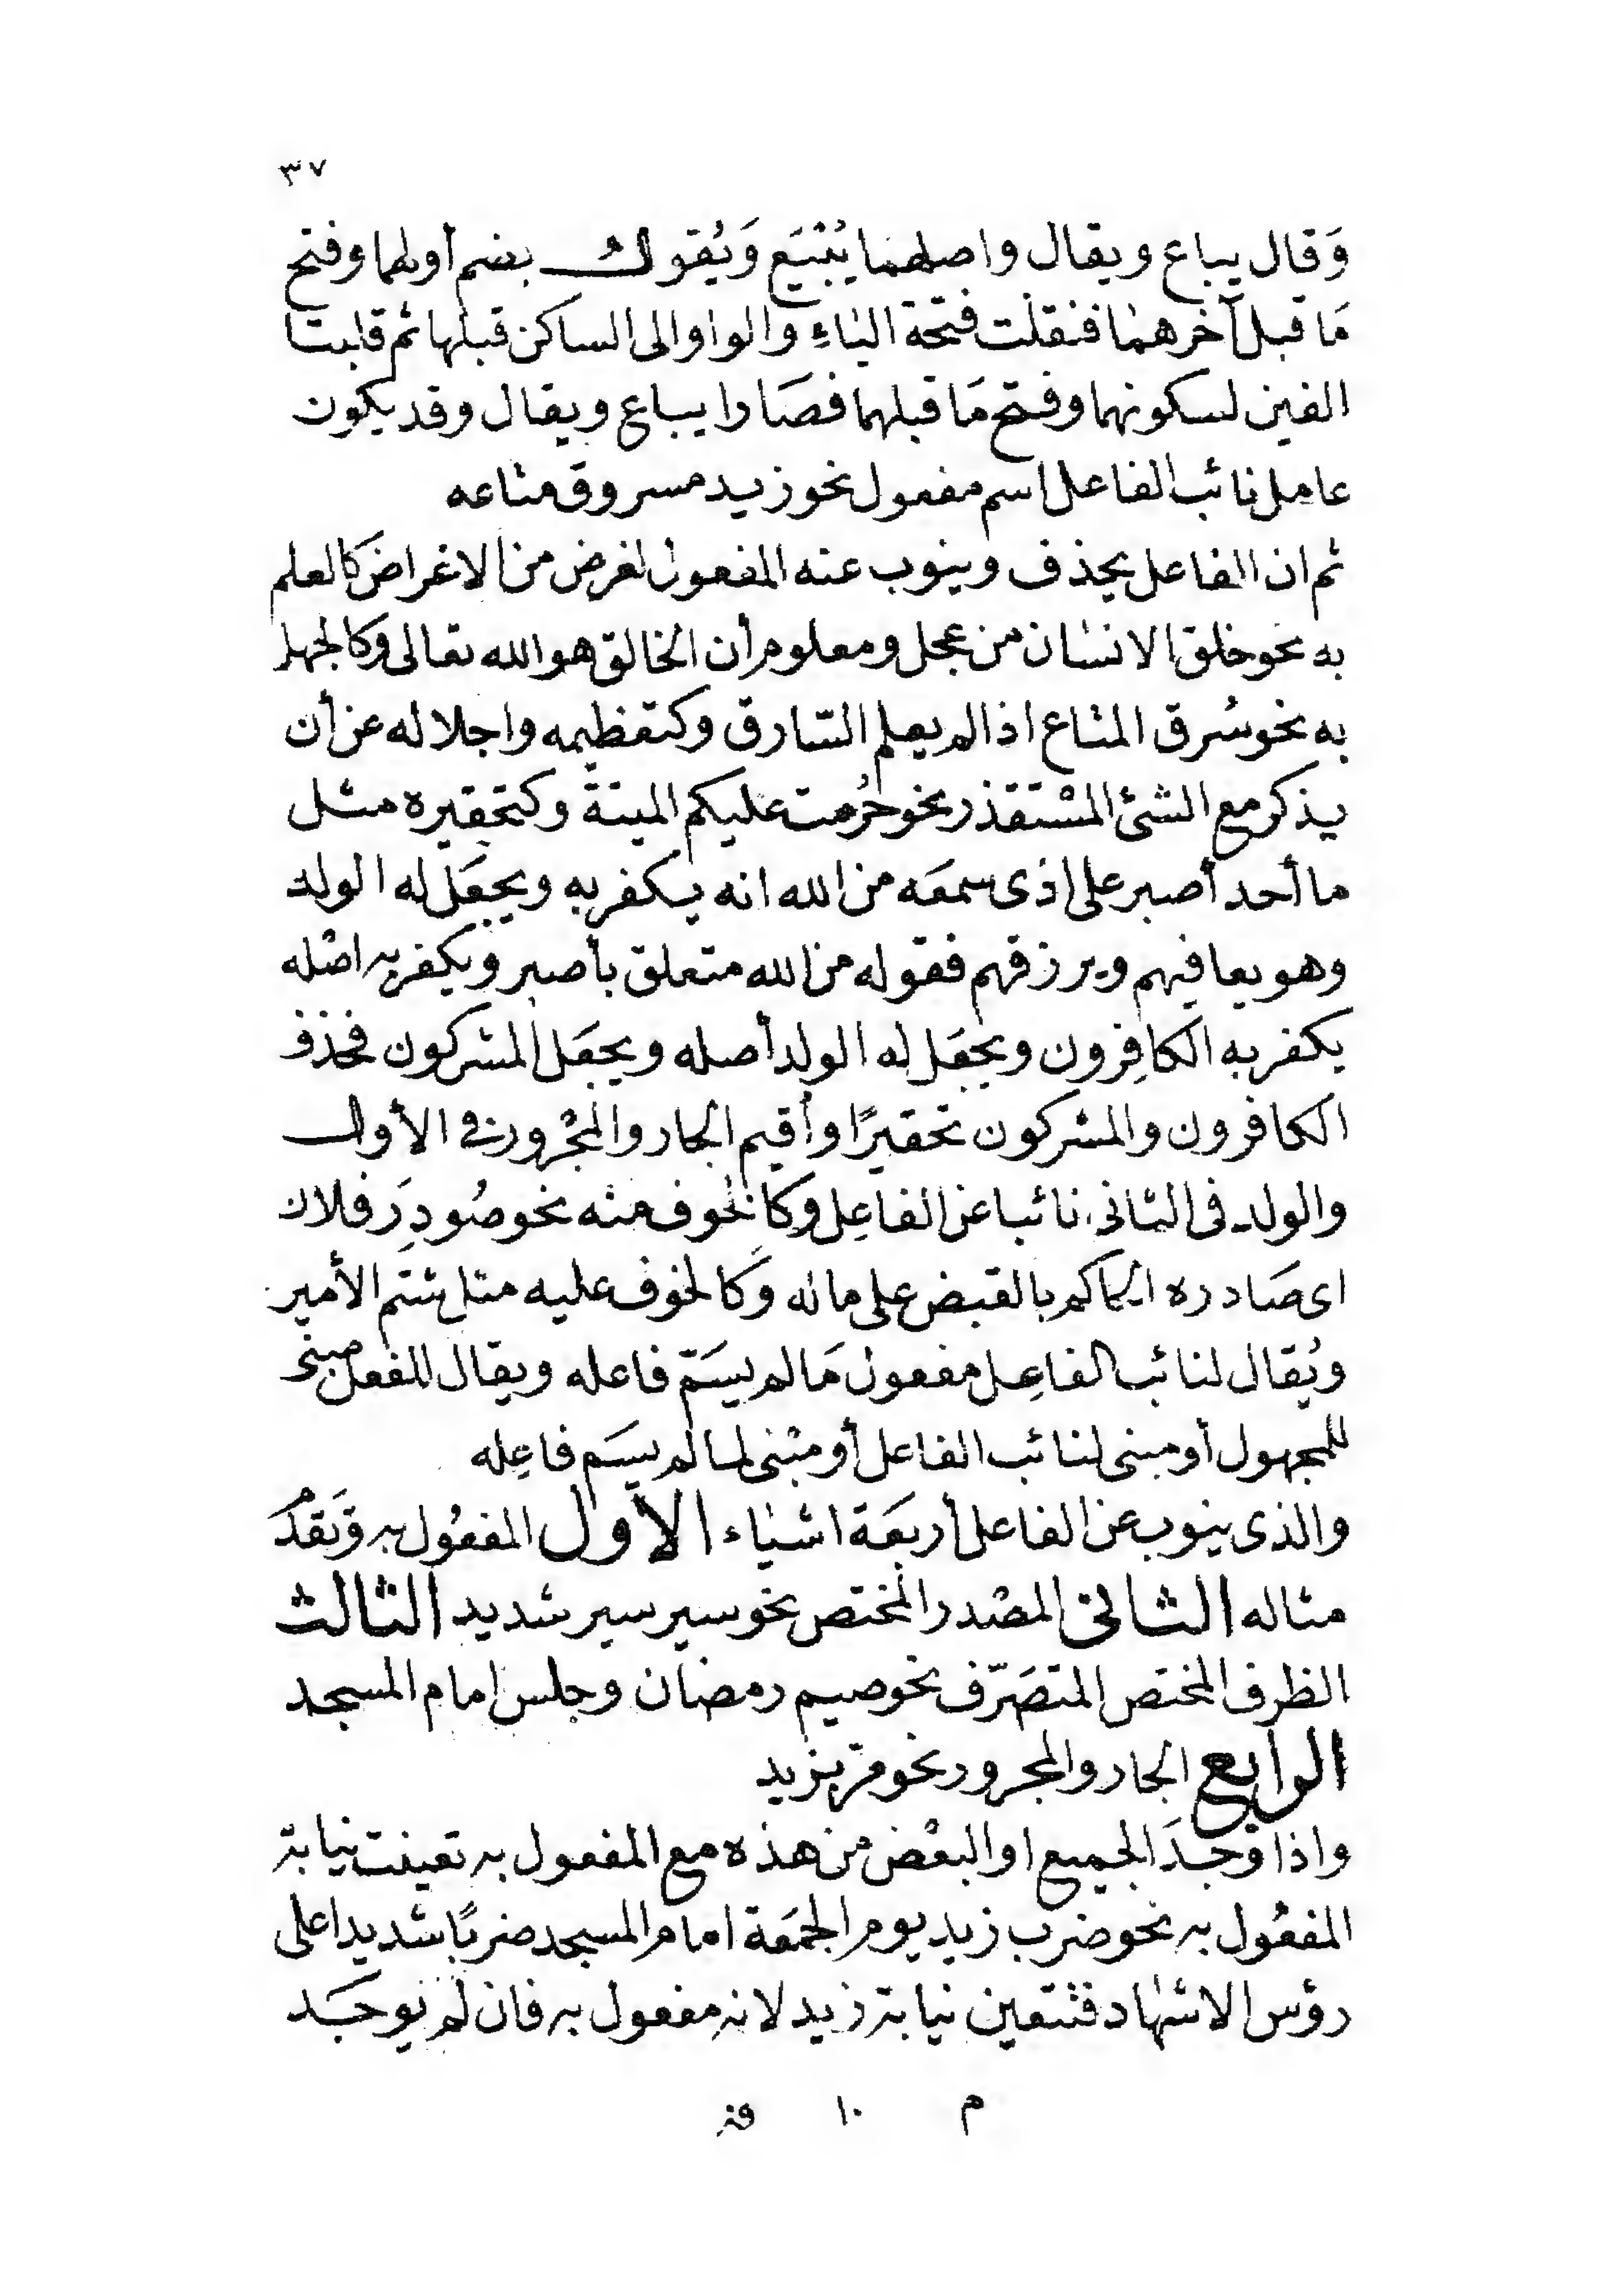 ٣٧
وَقال يباع ويقال واصلهما يُبْيَع وَيُقْوَل بضم أولهما وفتح
مَا قبل آخرهما فنقلت فتحة الياءِ والواو الى الساكن قبلها ثم قلبتا
الفين لسكونهما وفتح مَا قبلهما فصَارا يباع ويقال وقد يكون
عامل نائب الفاعل اسم مفعول نحو زيد مسروق متاعه
ثم ان الفاعل يحذف وينوب عنه المفعول لغرض من الاغراض كالعلم
به نحو خلق الانسان من عجل ومعلوم أن الخالق هو الله تعالى وكالجهل
به نحو سُرق المتاع اذا لم يعلم السّارق وكتعظيمه واجلاله عن أن
يذكر مع الشئ المسْتقذر نحو حُرمت عليكم الميتة وكتحقيره مثل
ما أحد أصبر على اذى سمعَه من الله انه يكفر به ويجعَل له الولد
وهو يعافيهم ويرزقهم فقوله من الله متعلق بأصبر ويكفر به اصْله
يكفر به الكافِرون ويجعَل له الولد أصله ويجعَل المشركون فحذف
الكافرون والمشركون تحقيرًا وأقيم الجار والمجْرور في الأول
والولد فى الثانى نائبا عن الفاعِل وكالخوف منه نحو صُودِرَ فلان
اى صَادره الحاكم بالقبض على ماله وَكالخوف عليه مثل شتم الأمير
ويُقال لنائب الفاعِل مفعول مَا لم يسَمّ فاعله ويقال للفعل مبنى
للمجهول أو مبنى لنائب الفاعل أو مبْنى لما لم يسَم فاعِله
والذى ينوب عن الفاعل أربعَة اشياء الأول المفعُول به وَتقدم
مثاله الثاني المصْدر المختص نحو سير سير شديد الثالث
الظرف المختص المتصَرّف نحو صيم رمضان وجلس امام المسجد
الرابع الجار والمجرور نحو مرّ بزيد
واذا وُجدَ الجميع او البعْض من هذه مع المفعول به تعينت نيابة
المفعُول به نحو ضرب زيد يوم الجمَعة امام المسجد ضربًا شديدا على
رؤس الاشهاد فتتعين نيابة زيد لانه مفعول به فان لم يوجَد
م ١٠ فتح